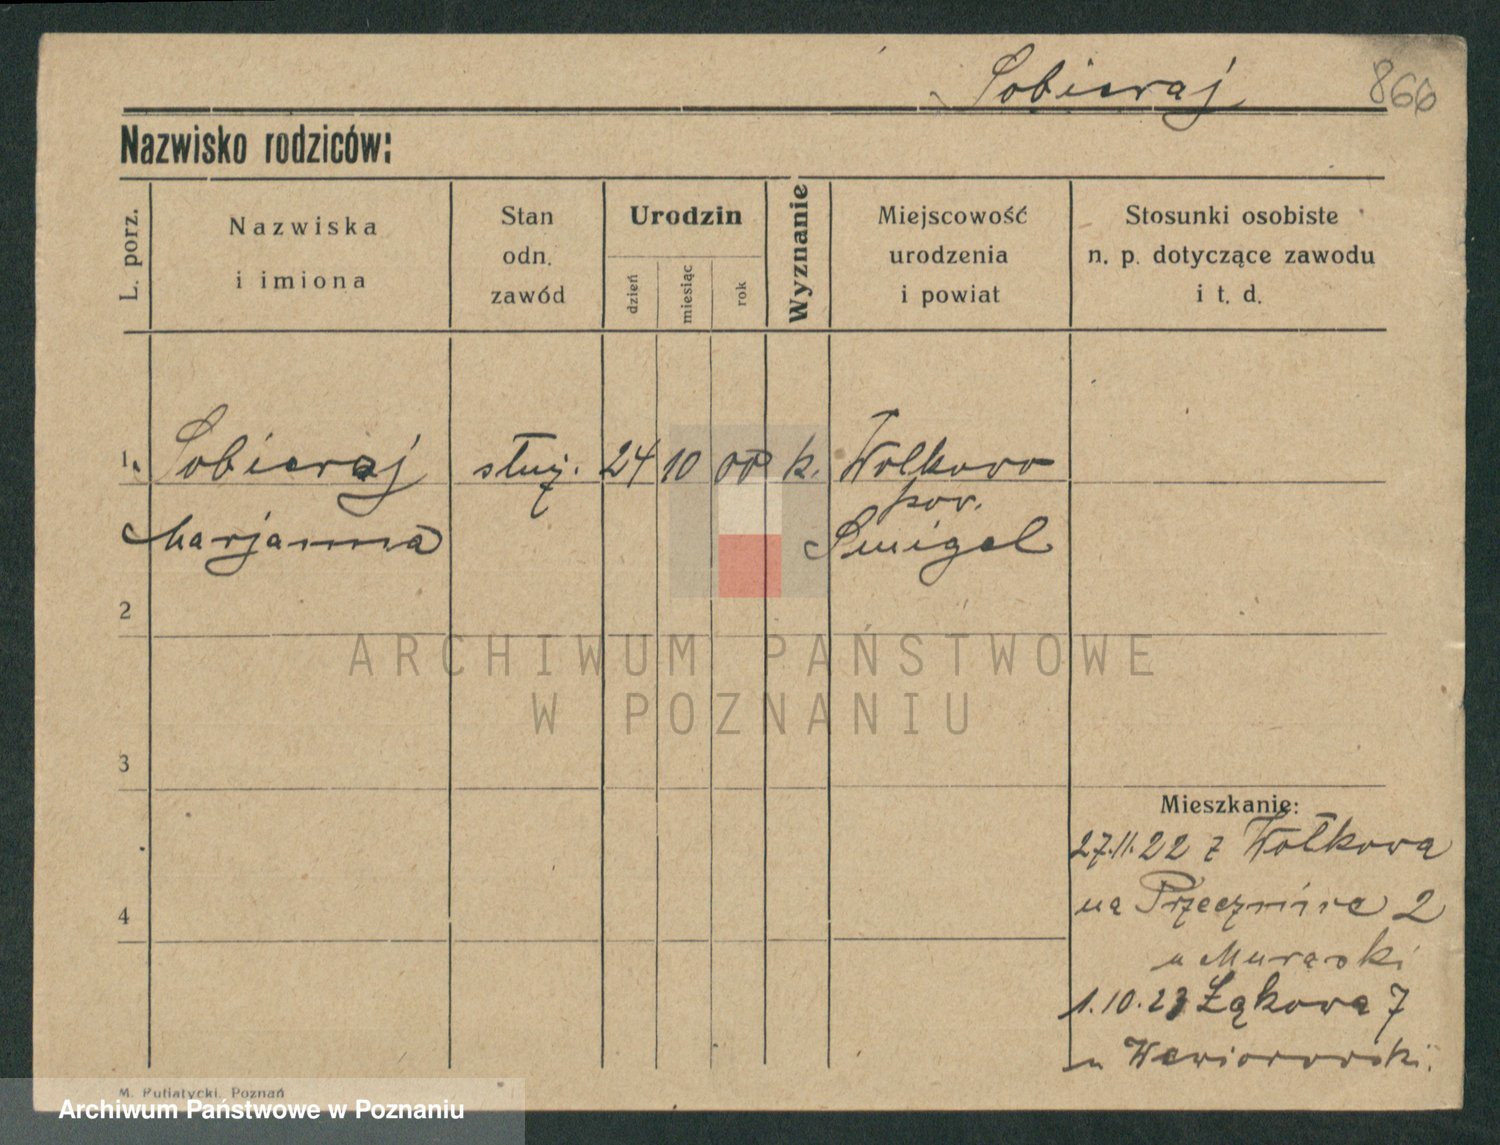 Sobieraj
866
Nazwisko rodziców:
L. porz.
Nazwiska
i imiona
Stan
odn.
zawód
Urodzin
dzień
miesiąc
rok
Wyznanie
Miejscowość
urodzenia
i powiat
Stosunki osobiste
n. p. dotyczące zawodu
i t. d.
1. Sobieraj służ. 24 10 00 k. Wolkowo
pow.
Marjanna Śmigel
2
3
4
Mieszkanie:
27.11.22 z Wołkowa
na Przecznice 2
u Muraski
1.10.23 Łąkowa 7
u Wewiorowski.
M. Putiatycki, Poznań
ARCHIWUM PAŃSTWOWE
W POZNANIU
Archiwum Państwowe w Poznaniu